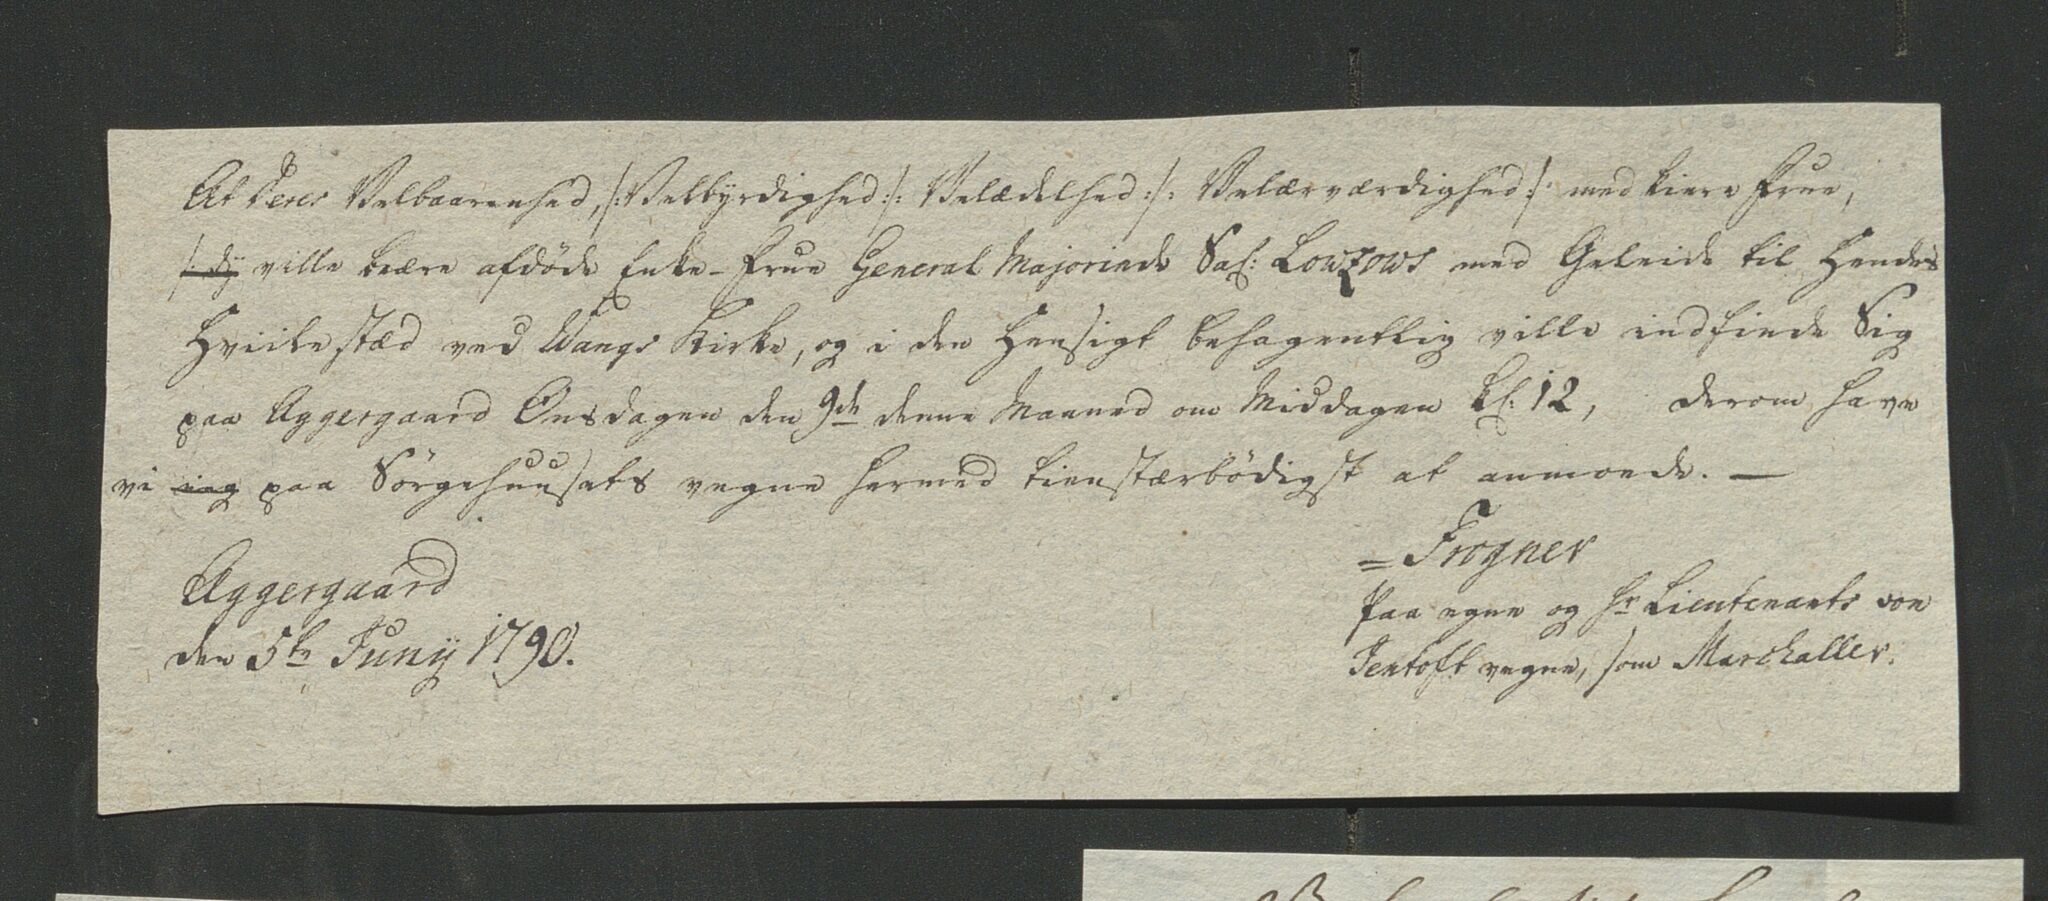 At Deres Velbaarenhed, /: Velbyrdighed :/: Velædelhed :/: Velærværdighed :/ med kiere Frue,
ville beære afdöde Enke-Frue General Majorinde Sal: Lowzows med Geleide til Hendes
Hviilestæd ved Wangs Kirke, og i den Hensigt behagentlig ville indfinde Sig
paa Aggergaard Onsdagen den 9de denne Maaned om Middagen Kl: 12, derom have
vi ieg paa Sörgehuusets vegne hermed tienstærbödigst at anmoede. —
= Frogner
Aggergaard
Paa egne og Hr Lieutenants von
den 5te Junij 1790.
Jentoft vegne, som Marchaller.